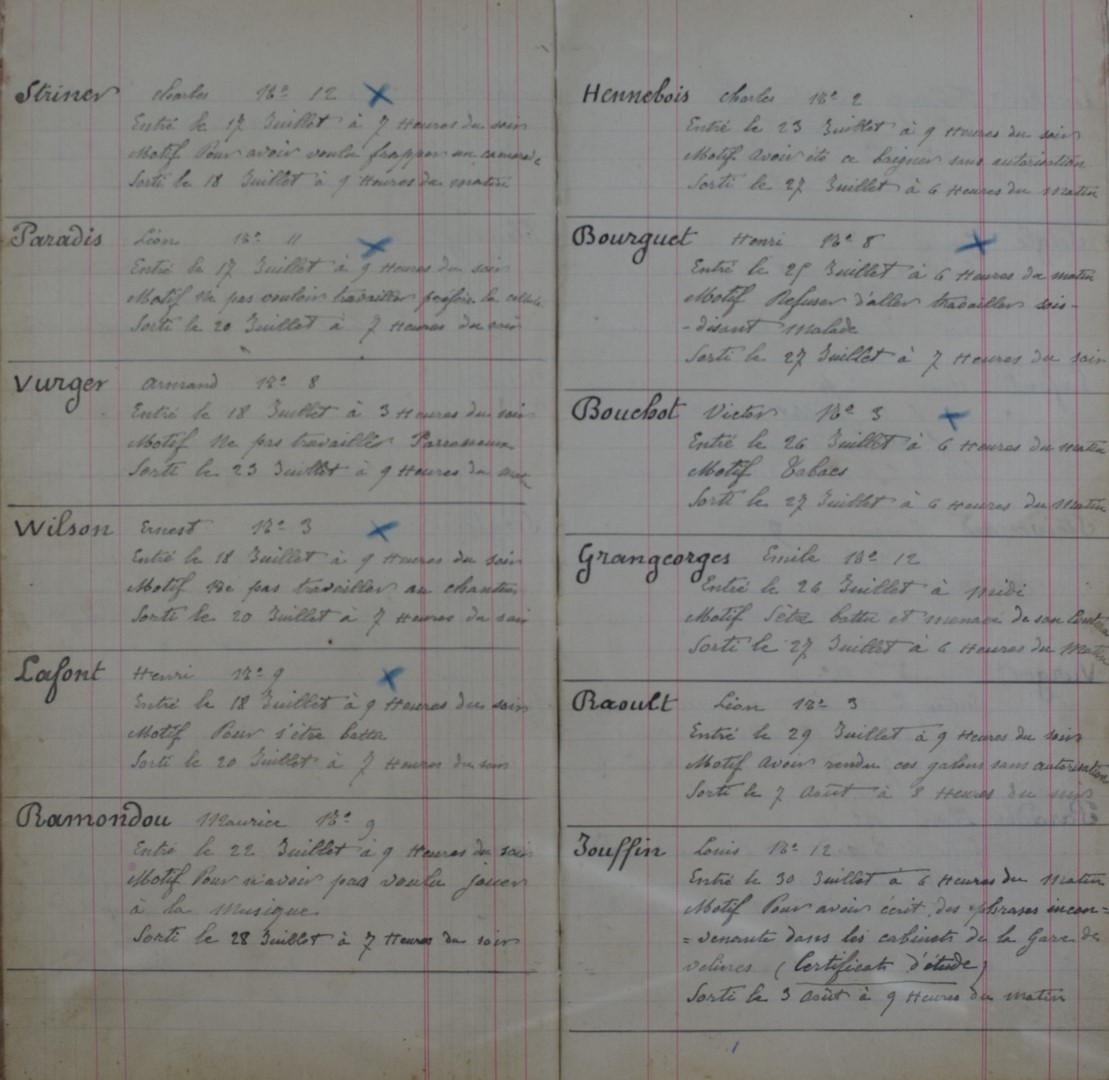 Striner Charles Bde 12
Entré le 17 Juillet à 7 Heures du soir
Motif Pour avoir voulu frapper un camarade
Sorti le 18 Juillet à 9 Heures du matin
Paradis Léon Bde 11
Entré le 17 Juillet à 9 Heures du soir
Motif Ne pas vouloir travailler préfère la cellule
Sorti le 20 Juillet à 7 Heures du soir
Vurger Armand Bde 8
Entré le 18 Juillet à 3 Heures du soir
Motif Ne pas travailler Paresseux
Sorti le 23 Juillet à 9 Heures du
Wilson Ernest Bde 3
Entré le 18 Juillet à 9 Heures du soir
Motif Ne pas travailler au chantier
Sorti le 20 Juillet à 7 Heures du soir
Lafont Henri Bde 9
Entré le 18 Juillet à 9 Heures du soir
Motif Pour s'être battu
Sorti le 20 Juillet à 7 Heures du soir
Ramondou Maurice Bde 9
Entré le 22 Juillet à 9 Heures du soir
Motif Pour n'avoir pas voulu jouer
à la musique
Sorti le 28 Juillet à 7 Heures du soir
Hennebois Charles Bde 2
Entré le 23 Juillet à 9 Heures du soir
Motif Avoir été ce baigner sans autorisation
Sorti le 27 Juillet à 6 Heures du Matin
Bourguet Henri Bde 8
Entré le 25 Juillet à 6 Heures du matin
Motif Refuser d'aller travailler sois-
-disant malade
Sorti le 27 Juillet à 7 Heures du soir
Bouchot Victor Bde 3
Entré le 26 Juillet à 6 Heures du matin
Motif Tabacs
Sorti le 27 Juillet à 6 Heures du Matin
Grangeorges Emile Bde 12
Entré le 26 Juillet à midi
Motif S'être battu et menacé de son
Sorti le 27 Juillet à 6 Heures du Matin
Raoult Léon Bde 3
Entré le 29 Juillet à 9 Heures du soir
Motif Avoir rendu ces galons sans autorisation
Sorti le 7 Août à 8 Heures du
Jouffin Louis Bde 12
Entré le 30 Juillet à 6 Heures du Matin
Motif Pour avoir écrit des phrases incon=
=venante dans les cabinets de la Gare de
velines (Certificats d'étude)
Sorti le 3 Août à 9 Heures du matin